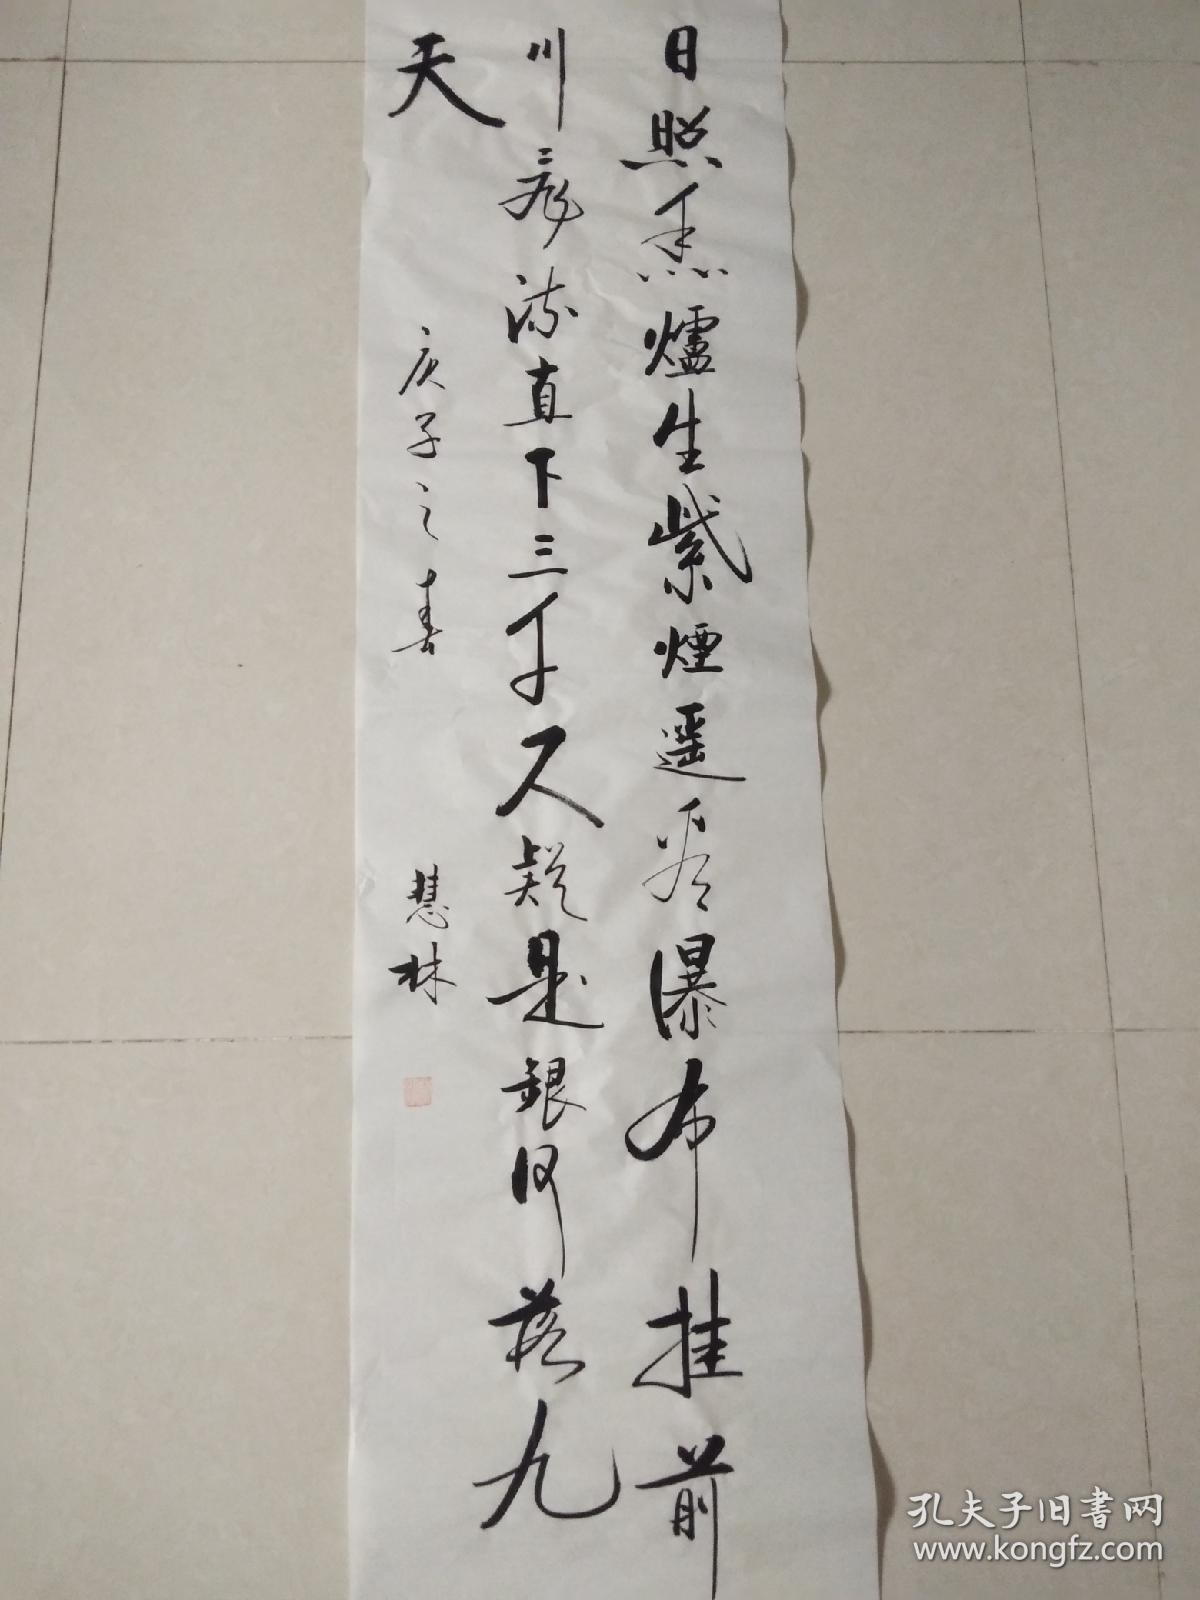 日照香爐生紫煙遥看瀑布挂前
川飛流直下三千尺疑是銀河落九
天
庚子之春
慧林
孔夫子旧书网
www.kongfz.com